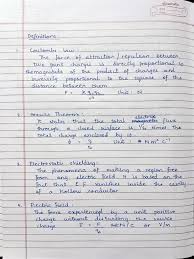 Definitions
1. Coulombs law :
The force of attraction / repulsion between
two point charges is directly proportional to
the magnitude of the product of charges and
inversely proportional to the square of the
distance between them
F =
2. Gauss's Theorem :
It states that the total electric flux
through a closed surface is 1/ε₀ times the
total charge enclosed by it
3. Electrostatic shielding :
The phenomena of making a region free
from any electric field. It is based on the
fact that E.F vanishes inside the cavity
of a hollow conductor
4. Electric Field :
The force experienced by a unit positive
charge without disturbing the source
charge E = F N/C or V/m